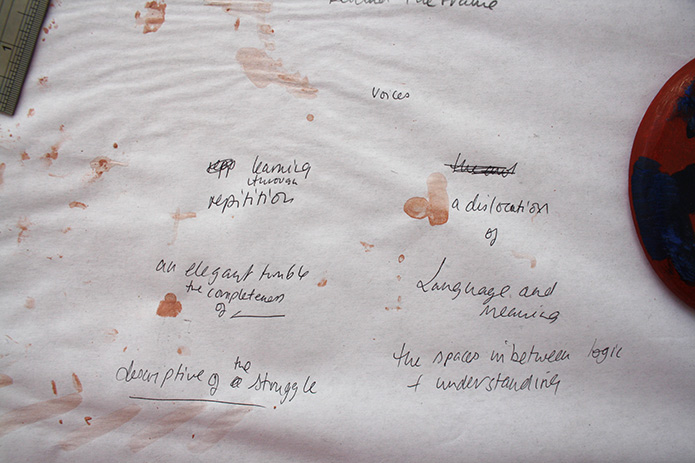 behind the frame
voices
learning
through
repitition
a dislocation
of
an elegant tumble
the completeness
of
Language and
meaning
descriptive of the struggle
the spaces in between logic
+ understanding